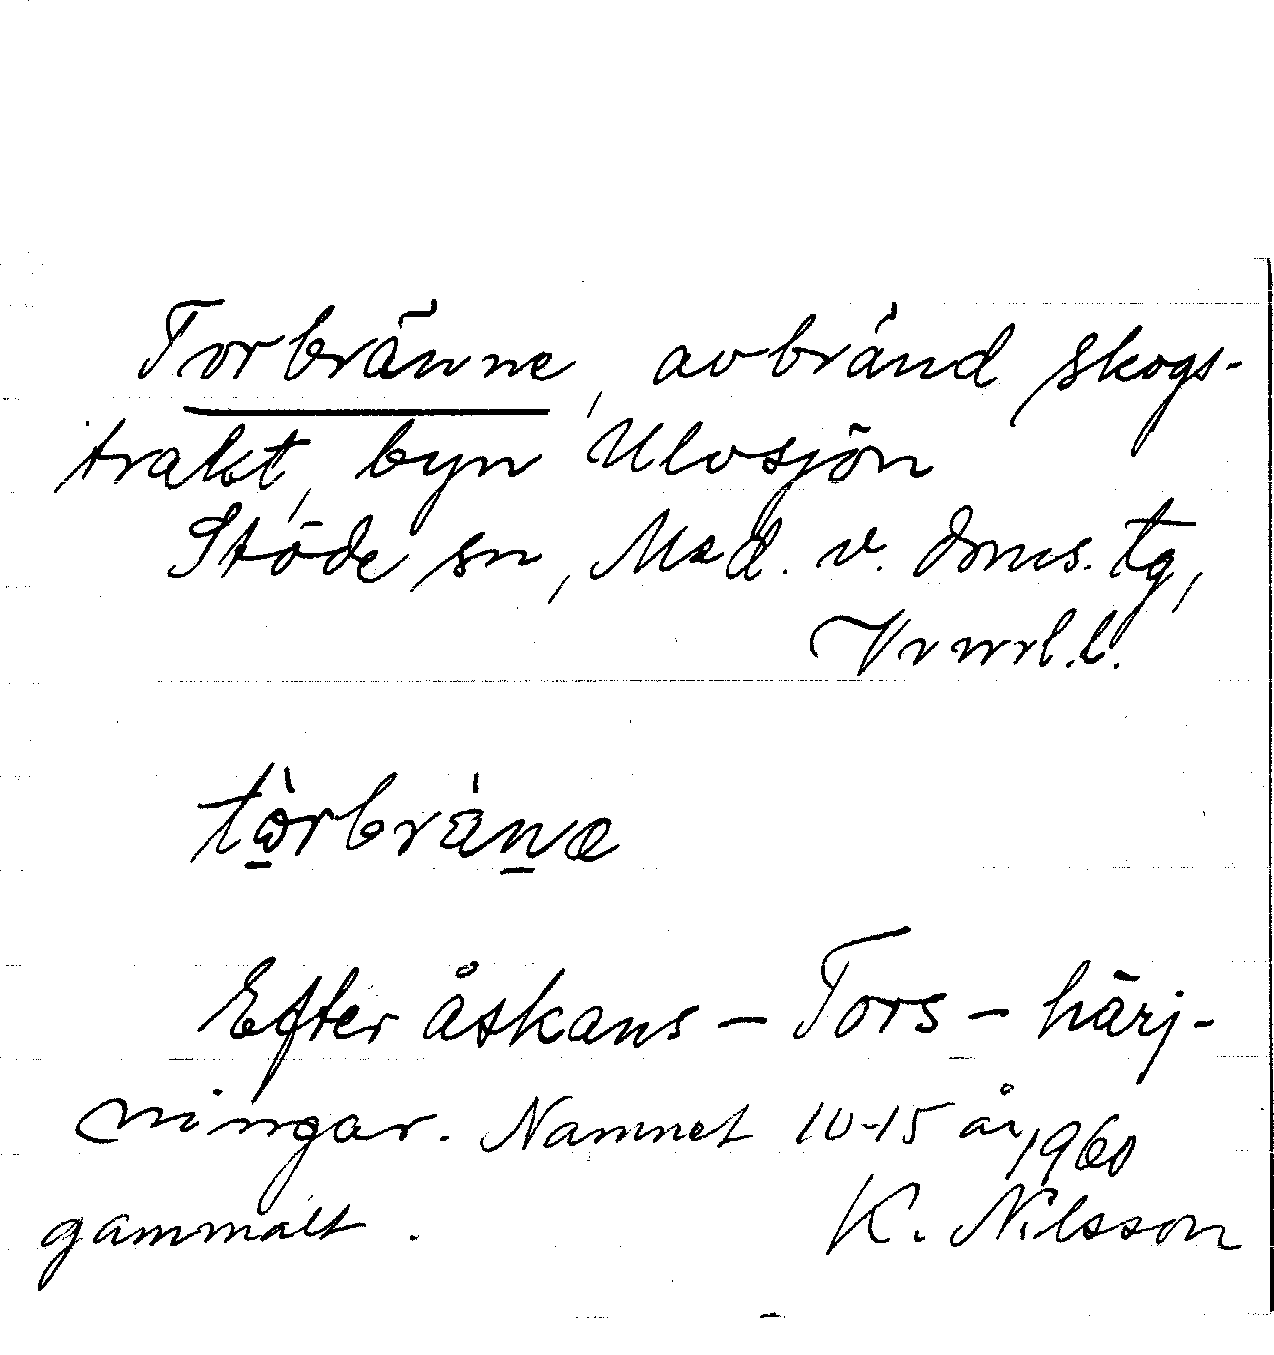 Torbränne, avbränd skogs-
trakt, byn Ulvsjön
Stöde sn, Med. v. doms. tg,
Vnrrl. l.
tòrbräne
Efter åskans – Tors – härj-
ningar. Namnet 10-15 år
gammalt. 1960
K. Nilsson